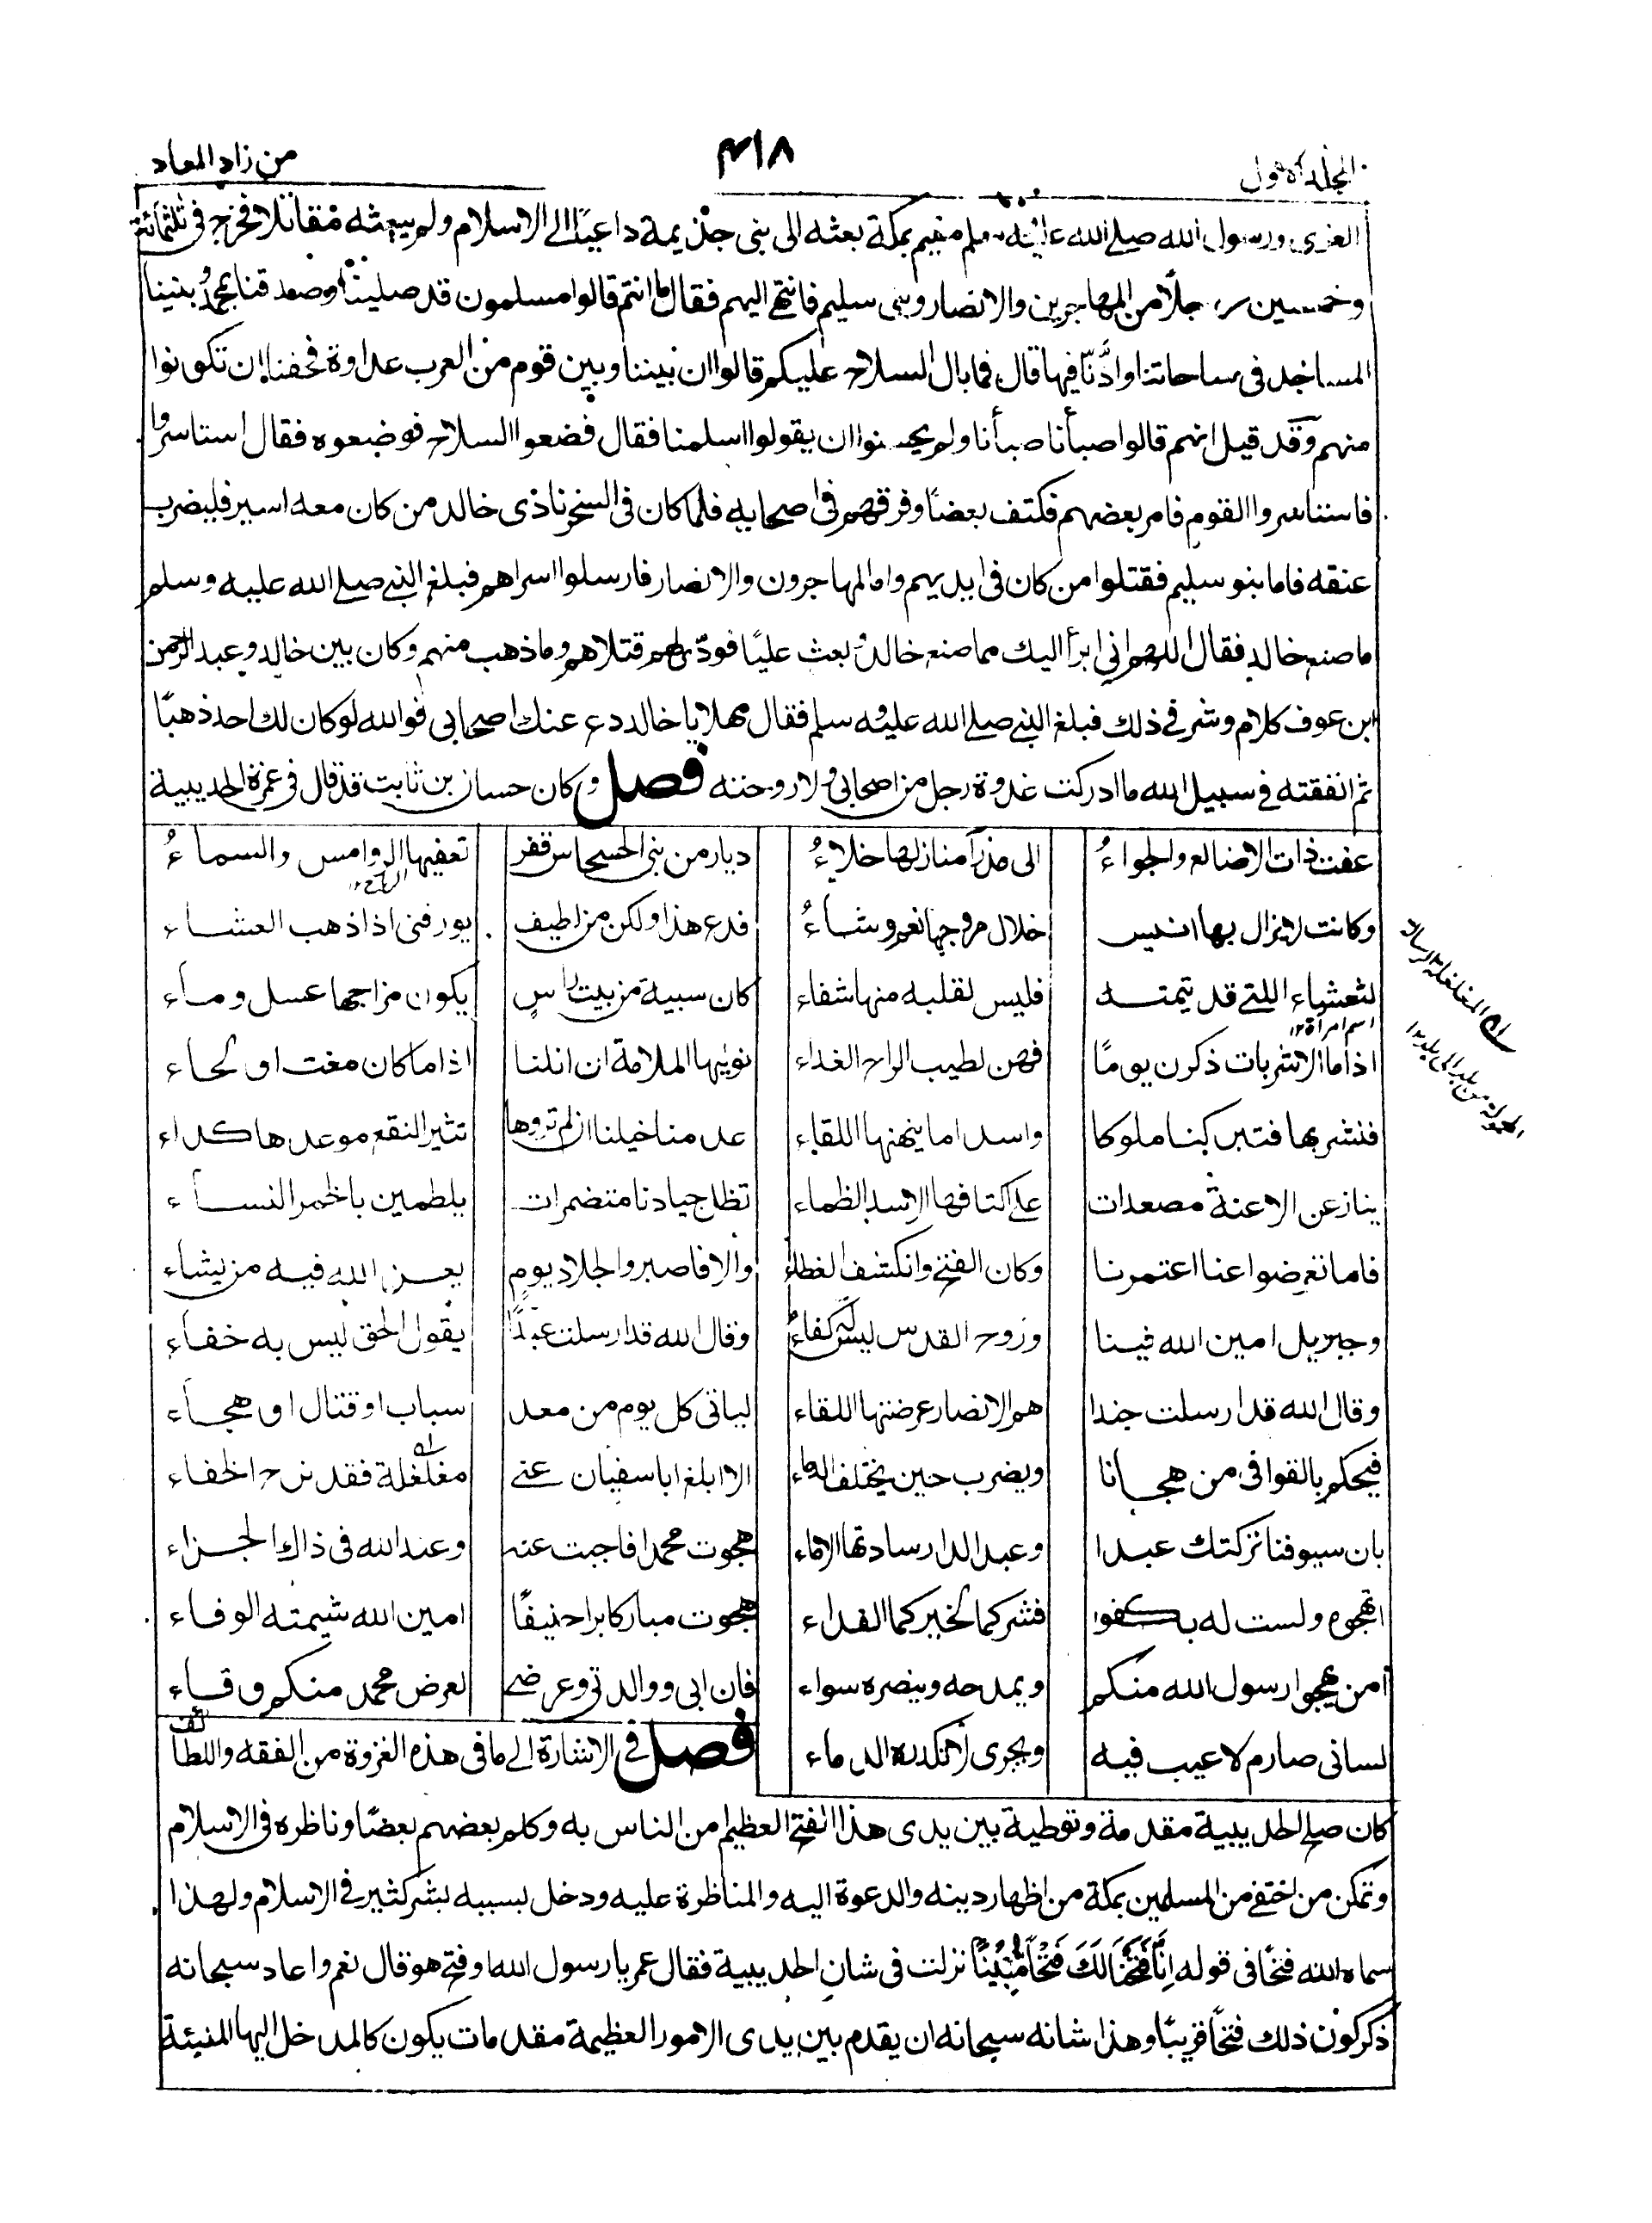 المجلد الاول
٤١٨
من زاد المعاد
العزى ورسول الله صلے الله عليه وسلم مقيم بمكة بعثه الى بنى جذيمة داعيًا الے الاسلام ولم يبعثه مقاتلا فخرج فى ثلثمائة
وخمسين رجلًا من المهاجرين والانصار وبنى سليم فانتهے اليهم فقال ما انتم قالوا مسلمون قد صلينا وصدقنا بمحمدٍ وبنينا
المساجد فى ساحاتنا واذَّنّا فيها قال فما بال السلاح عليكم قالوا ان بيننا وبين قوم من العرب عداوة فخفنا ان تكونوا
منهم وقد قيل انهم قالوا صبأنا صبأنا ولم يحسنوا ان يقولوا اسلمنا فقال فضعوا السلاح فوضعوه فقال استاسروا
فاستاسر وا القوم فامر بعضهم فكتف بعضًا وفرقهم فى اصحابه فلما كان فى السحر نادى خالد من كان معه اسير فليضرب
عنقه فاما بنو سليم فقتلوا من كان فى ايديهم واما المهاجرون والانصار فارسلوا اسراهم فبلغ النبے صلے الله عليه وسلم
ما صنع خالد فقال اللهم انى ابرأ اليك مما صنع خالدٌ وبعث عليًا فودّى لهم قتلاهم وما ذهب منهم وكان بين خالد وعبد الرحمن
ابن عوف كلام وشر فى ذلك فبلغ النبے صلے الله عليه وسلم فقال مهلا يا خالد دع عنك اصحابى فوالله لو كان لك احد ذهبًا
ثم انفقته فى سبيل الله ما ادركت غدوة رجل من اصحابى ولا روحته فصل وكان حسان بن ثابت قد قال فى عمرة الحديبية
عفت ذات الاضالع والجواءُ الى عذرآ منازلها خلاءُ ديار من بنى الحسحاس قفر تعفيها الروامس والسماءُ
الرياح ١٢
وكانت لا يزال بها انيس خلال مروجها نعم وشاءُ فدع هذا ولكن من لطيف يورقنى اذا ذهب العشاء
لشعشاء اللتے قد تيمته فليس لقلبه منها شفاء كان سبيئة من بيت راس يكون مزاجها عسل وماء
اسم امرأة ١٢
اذا ما الاشربات ذكرن يومًا فهن لطيب الراح الغداء نوليها الملامة ان المنا اذا ما كان مغث او لحاء
فنشربها فتتركنا ملوكا واسدا ما ينهنها اللقاء عد منا خيلنا ان لم تروها تثير النقع موعدها كداء
ينازعن الاعنة مصعدات علے اكتافها الاسد الظماء تظل جيادنا متضمرات يلطمهن بالخمر النساء
فاما تعرضوا عنا اعتمرنا وكان الفتح وانكشف الغطاء والا فاصبروا لجلاد يوم يعز الله فيه من يشاء
وجبريل امين الله فينا وروح القدس ليس له كفاءُ وقال الله قد ارسلت عبدًا يقول الحق ليس به خفاء
وقال الله قد ارسلت جندا هم الانصار عرضتها اللقاء لياتى كل يوم من معد سباب او قتال او هجاء
فيحكم بالقوافى من هجانا ويضرب حين يختلف الدماء الا ابلغ ابا سفيان عنے مغلغلة فقد نرح الخفاء
بان سيوفنا تركتك عبدا وعبد الدار سادتها الاماء هجوت محمدا فاجبت عنه وعند الله فى ذاك الجزاء
اتهجوه ولست له بكفوا فشركما لخيركما الفداء هجوت مباركا برا حنيفًا امين الله شيمته الوفاء
أمن يهجوا رسول الله منكم ويمدحه وينصره سواء فان ابى ووالدتى وعرضے لعرض محمد منكم وقاء
لسانى صارم لا عيب فيه وبحرى لا تكدره الدماء
فصل فى الاشارة الے ما فى هذه الغزوة من الفقه واللطائف
كان صلح الحديبية مقدمة وتوطية بين يدى هذا الفتح العظيم امن الناس به وكلم بعضهم بعضًا وناظره فى الاسلام
وتمكن من اختفے من المسلمين بمكة من اظهار دينه والدعوة اليه والمناظرة عليه ودخل بسببه بشر كثير فى الاسلام ولهذا
سماه الله فتحًا فى قوله اِنَّا فَتَحْنَا لَكَ فَتْحًا مُّبِيْنًا نزلت فى شان الحديبية فقال عمر يا رسول الله اوفتح هو قال نعم واعاد سبحانه
ذكر كون ذلك فتحًا قريبًا وهذا شانه سبحانه ان يقدم بين يدى الامور العظيمة مقدمات يكون كالمدخل اليها المنبئة
له المغلغلة الرسالة
المحمولة من بلد الى بلد ١٢